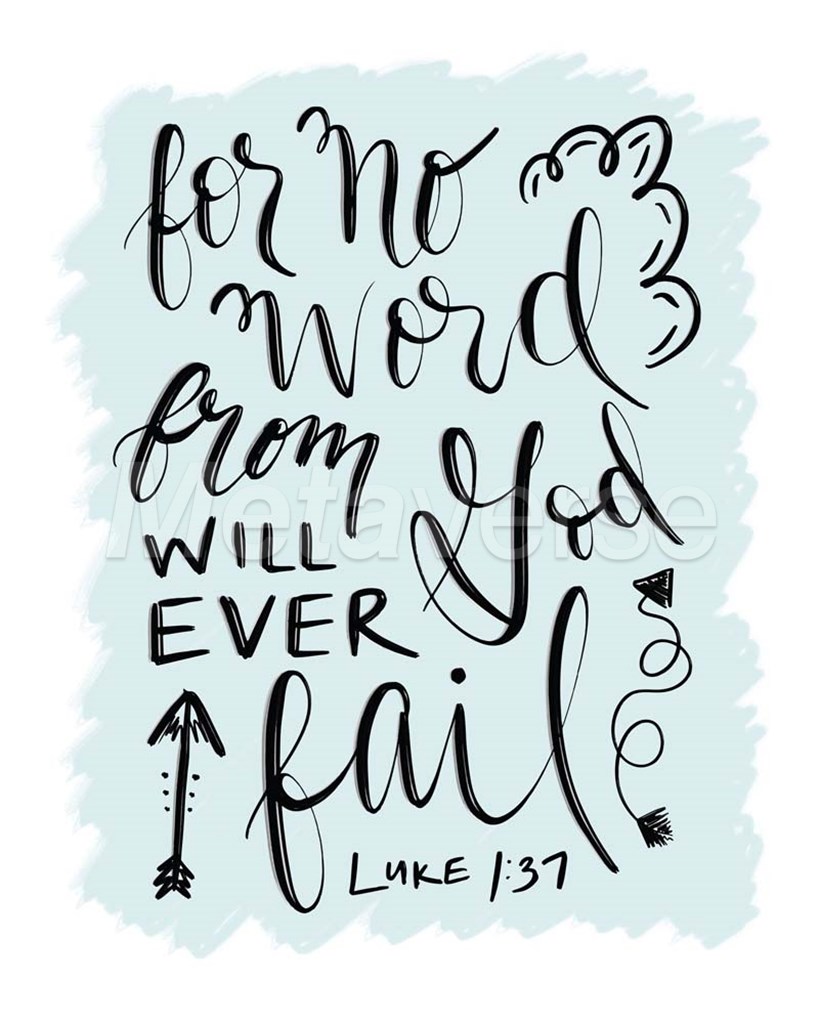 for No
word
from God
WILL
EVER
fail
LUKE 1:37
Metaverse